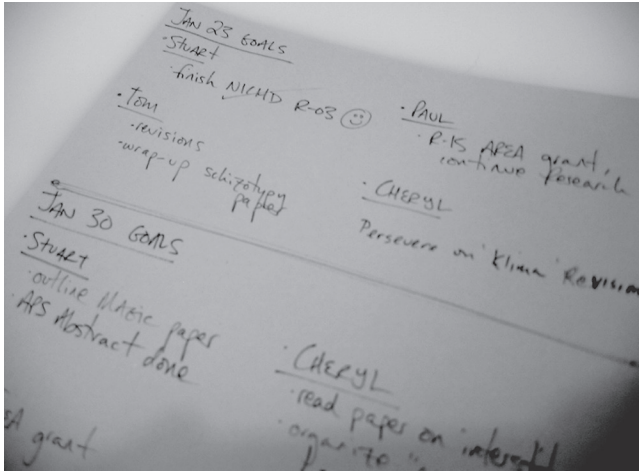 JAN 23 GOALS
· STUART
· finish NICHD R-03 ☺
· TOM
· revisions
· wrap-up schizotypy
paper
· PAUL
· R-15 AREA grant,
continue research
· CHERYL
Persevere on 'Klima' Revision
JAN 30 GOALS
· STUART
· outline MAGIC paper
· APS Abstract done
grant
· CHERYL
· read paper on
· organize "